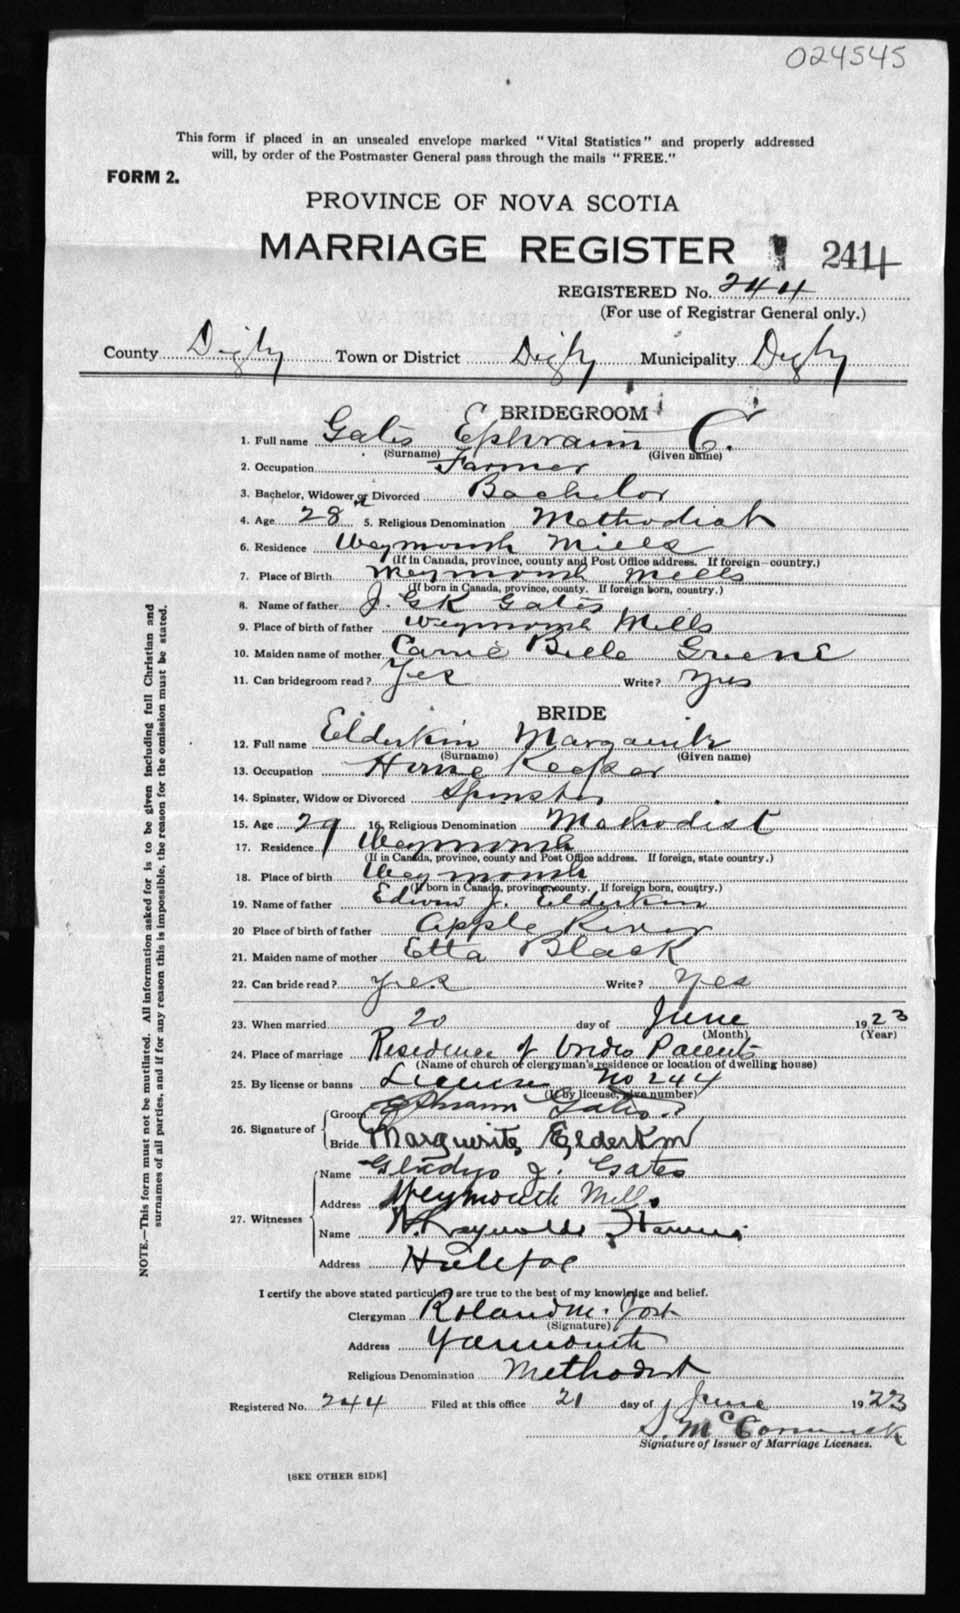 024545
This form if placed in an unsealed envelope marked "Vital Statistics" and properly addressed
will, by order of the Postmaster General pass through the mails "FREE."
FORM 2.
PROVINCE OF NOVA SCOTIA
MARRIAGE REGISTER 2414
REGISTERED No. 244
(For use of Registrar General only.)
County Digby Town or District Digby Municipality Digby
BRIDEGROOM
1. Full name Gates Ephraim C.
(Surname) (Given name)
2. Occupation Farmer
3. Bachelor, Widower or Divorced Bachelor
4. Age 28 5. Religious Denomination Methodist
6. Residence Weymouth Mills
(If in Canada, province, county and Post Office address. If foreign—country.)
7. Place of Birth Weymouth Mills
(If born in Canada, province, county. If foreign born, country.)
8. Name of father J. GK Gates
9. Place of birth of father Weymouth Mills
10. Maiden name of mother Carrie Belle Greene
11. Can bridegroom read? Yes Write? Yes
BRIDE
12. Full name Elderkin Marguerite
(Surname) (Given name)
13. Occupation House Keeper
14. Spinster, Widow or Divorced Spinster
15. Age 29 16. Religious Denomination Methodist
17. Residence Weymouth
(If in Canada, province, county and Post Office address. If foreign, state country.)
18. Place of birth Weymouth
(If born in Canada, province, county. If foreign born, country.)
19. Name of father Edwin J. Elderkin
20 Place of birth of father Apple River
21. Maiden name of mother Etta Black
22. Can bride read? Yes Write? Yes
23. When married 20 day of June 1923
(Month) (Year)
24. Place of marriage Residence of brides Parents
(Name of church of clergyman's residence or location of dwelling house)
25. By license or banns License No 244
(If by license, give number)
26. Signature of Groom Ephraim Gates
Bride Marguerite Elderkin
27. Witnesses Name Gladys J. Gates
Address Weymouth Mills
Name W. Reynolds
Address Halifax
I certify the above stated particulars are true to the best of my knowledge and belief.
Clergyman Roland M. Jost
(Signature)
Address Yarmouth
Religious Denomination Methodist
Registered No. 244 Filed at this office 21 day of June 1923
S. McCormick
Signature of Issuer of Marriage Licenses.
[SEE OTHER SIDE]
NOTE.—This form must not be mutilated. All information asked for is to be given including full Christian and
surnames of all parties, and if for any reason this is impossible, the reason for the omission must be stated.